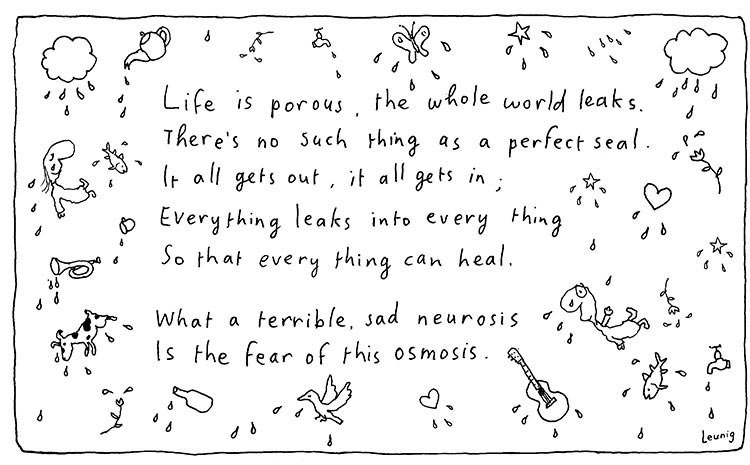 Life is porous, the whole world leaks.
There's no such thing as a perfect seal.
It all gets out, it all gets in;
Everything leaks into every thing
So that every thing can heal.
What a terrible, sad neurosis
Is the fear of this osmosis.
Leunig